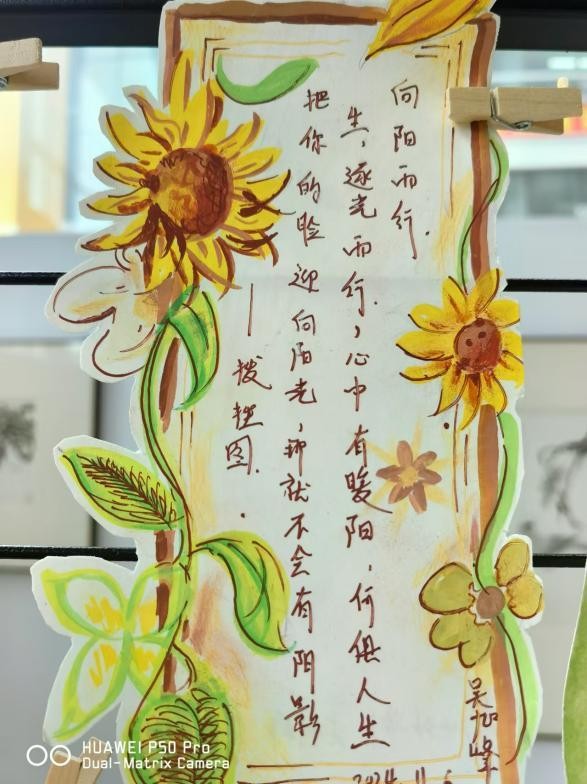 向阳而行.
生,逐光而行.,心中有暖阳.何惧人生
把你的脸迎向阳光,那就不会有阴影
图.
吴 峰
2024.11.
HUAWEI P50 Pro
Dual-Matrix Camera